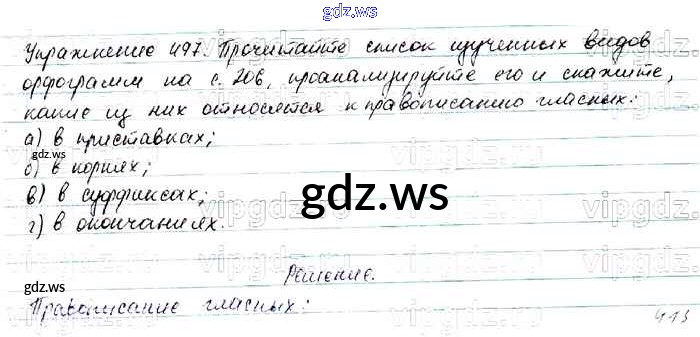 gdz.ws
Упражнение 497. Прочитайте список изученных видов
орфограмм на с. 206, проанализируйте его и скажите,
какие из них относятся к правописанию гласных:
а) в приставках;
gdz.ws
б) в корнях;
в) в суффиксах;
gdz.ws
г) в окончаниях.
Решение.
gdz.ws
Правописание гласных:
413